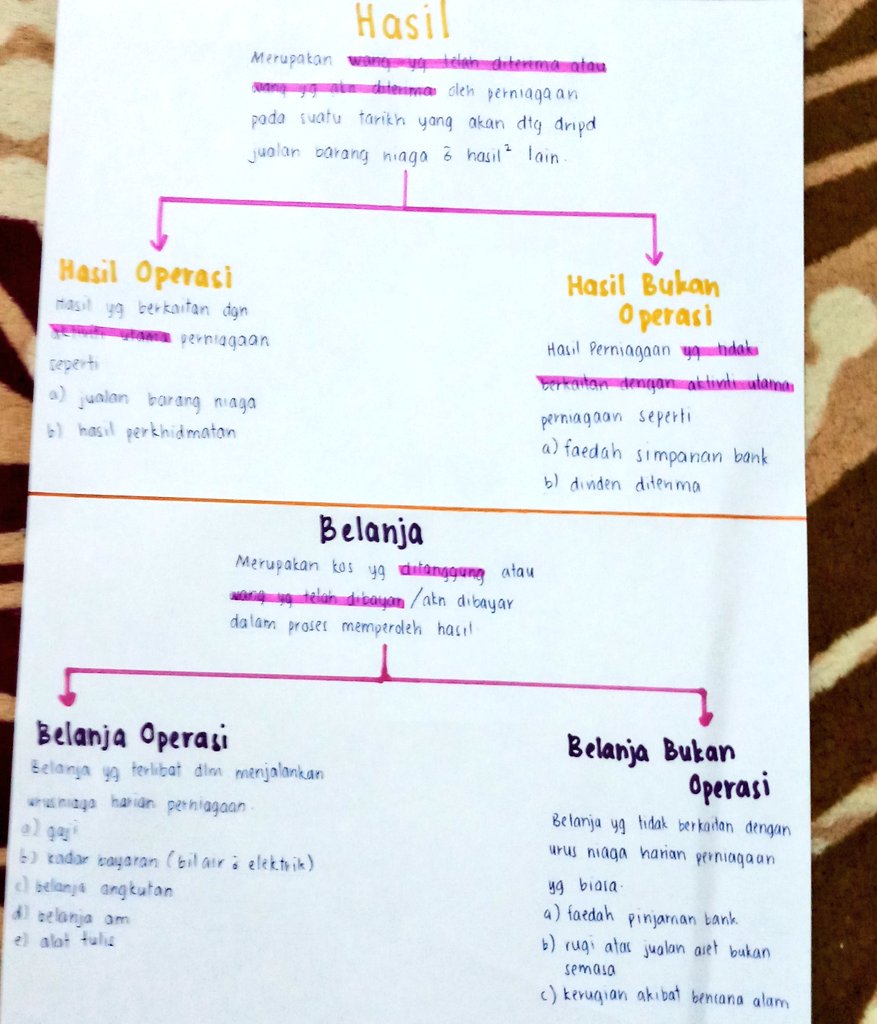 Hasil
Merupakan wang yg telah diterima atau
wang yg akn diterima oleh perniagaan
pada suatu tarikh yang akan dtg dripd
jualan barang niaga & hasil² lain.
Hasil Operasi
Hasil yg berkaitan dgn
aktiviti utama perniagaan
seperti
a) jualan barang niaga
b) hasil perkhidmatan
Hasil Bukan
Operasi
Hasil Perniagaan yg tidak
berkaitan dengan aktiviti utama
perniagaan seperti
a) faedah simpanan bank
b) dividen diterima
Belanja
Merupakan kos yg ditanggung atau
wang yg telah dibayar /akn dibayar
dalam proses memperoleh hasil
Belanja Operasi
Belanja yg terlibat dlm menjalankan
urusniaga harian perniagaan.
a) gaji
b) kadar bayaran (bil air & elektrik)
c) belanja angkutan
d) belanja am
e) alat tulis
Belanja Bukan
Operasi
Belanja yg tidak berkaitan dengan
urus niaga harian perniagaan
yg biasa.
a) faedah pinjaman bank
b) rugi atas jualan aset bukan
semasa
c) kerugian akibat bencana alam